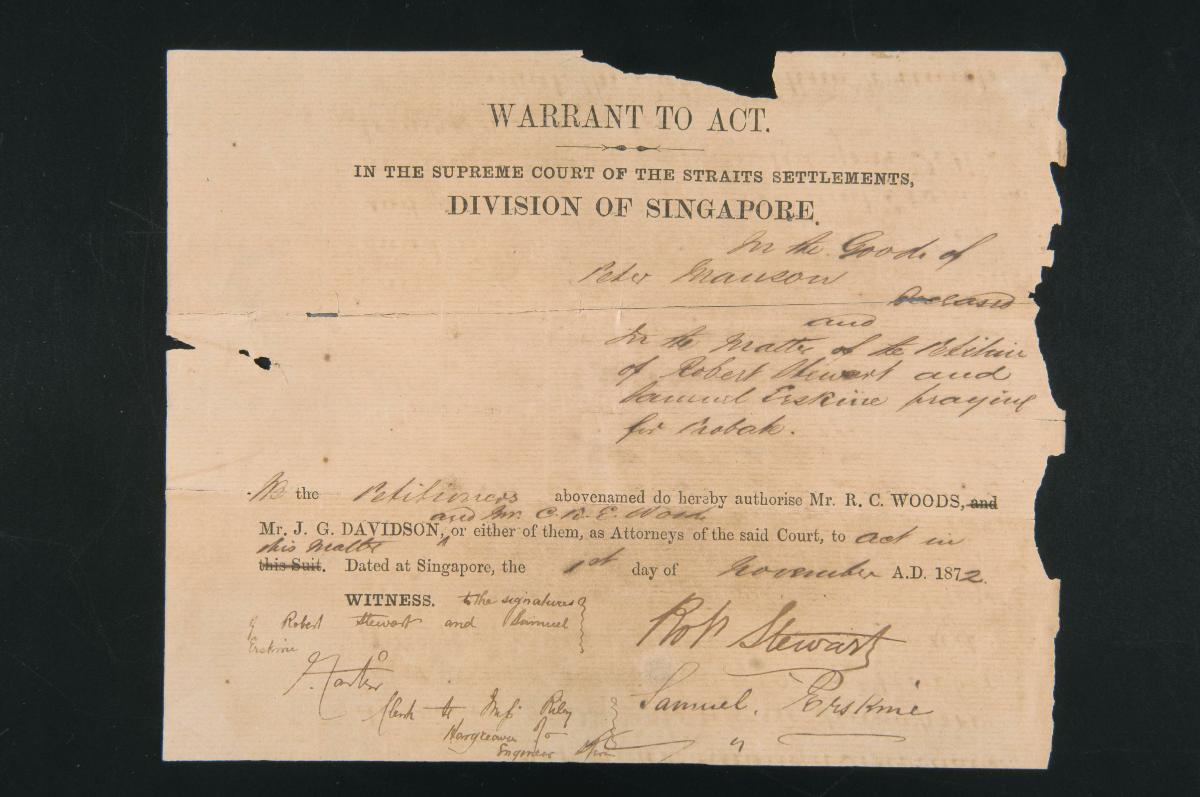 WARRANT TO ACT.
IN THE SUPREME COURT OF THE STRAITS SETTLEMENTS,
DIVISION OF SINGAPORE.
In the Goods of
Peter Manson
deceased
and
In the Matter of the Petition
of Robert Stewart and
Samuel Erskine praying
for Probate.
We the Petitioners abovenamed do hereby authorise Mr. R. C. WOODS, and
and Mr. C. R. E. Woods
Mr. J. G. DAVIDSON, or either of them, as Attorneys of the said Court, to act in
this Matter
this Suit. Dated at Singapore, the 1st day of November A.D. 1872.
WITNESS. to the signatures
of Robert Stewart and Samuel
Erskine
Robt Stewart
Clerk to Messrs Riley
Hargreaves &Co
Engineer
Samuel. Erskine